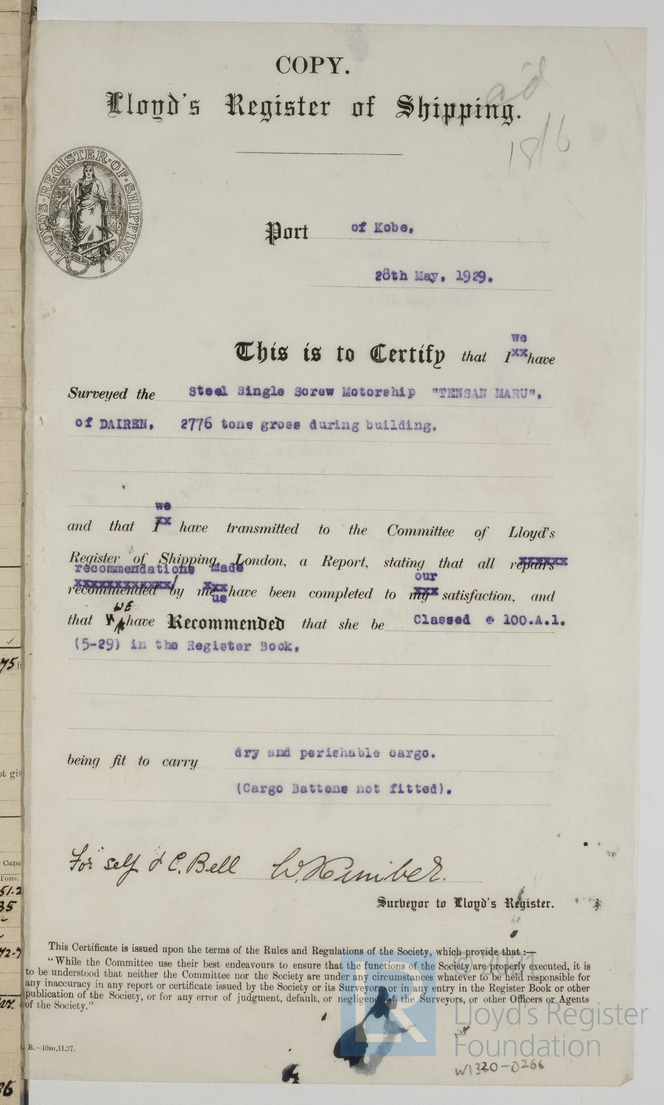 COPY.
Lloyd's Register of Shipping.
18/6
LLOYD'S·REGISTER·OF·SHIPPING
Port of Kobe,
28th May, 1929.
we
This is to Certify that I xx have
Surveyed the Steel Single Screw Motorship "TENSAN MARU",
of DAIREN, 2776 tons gross during building.
we
and that I xx have transmitted to the Committee of Lloyd's
Register of Shipping, London, a Report, stating that all repairs xxxxxxx
recommendations made our
recommended xxxxxxxxxxxx/ by me xxx have been completed to my xxx satisfaction, and
us
WE
that have Recommended that she be Classed 100.A.1.
(5-29) in the Register Book.
being fit to carry dry and perishable cargo.
(Cargo Battens not fitted).
For self & C. Bell W. Kimber.
Surveyor to Lloyd's Register.
This Certificate is issued upon the terms of the Rules and Regulations of the Society, which provide that :—
"While the Committee use their best endeavours to ensure that the functions of the Society are properly executed, it is
to be understood that neither the Committee nor the Society are under any circumstances whatever to be held responsible for
any inaccuracy in any report or certificate issued by the Society or its Surveyors or in any entry in the Register Book or other
publication of the Society, or for any error of judgment, default, or negligence of the Surveyors, or other Officers or Agents
of the Society."
B.—10m,11,27.
© 2021
LR
Lloyd's Register
Foundation
W1320-0266